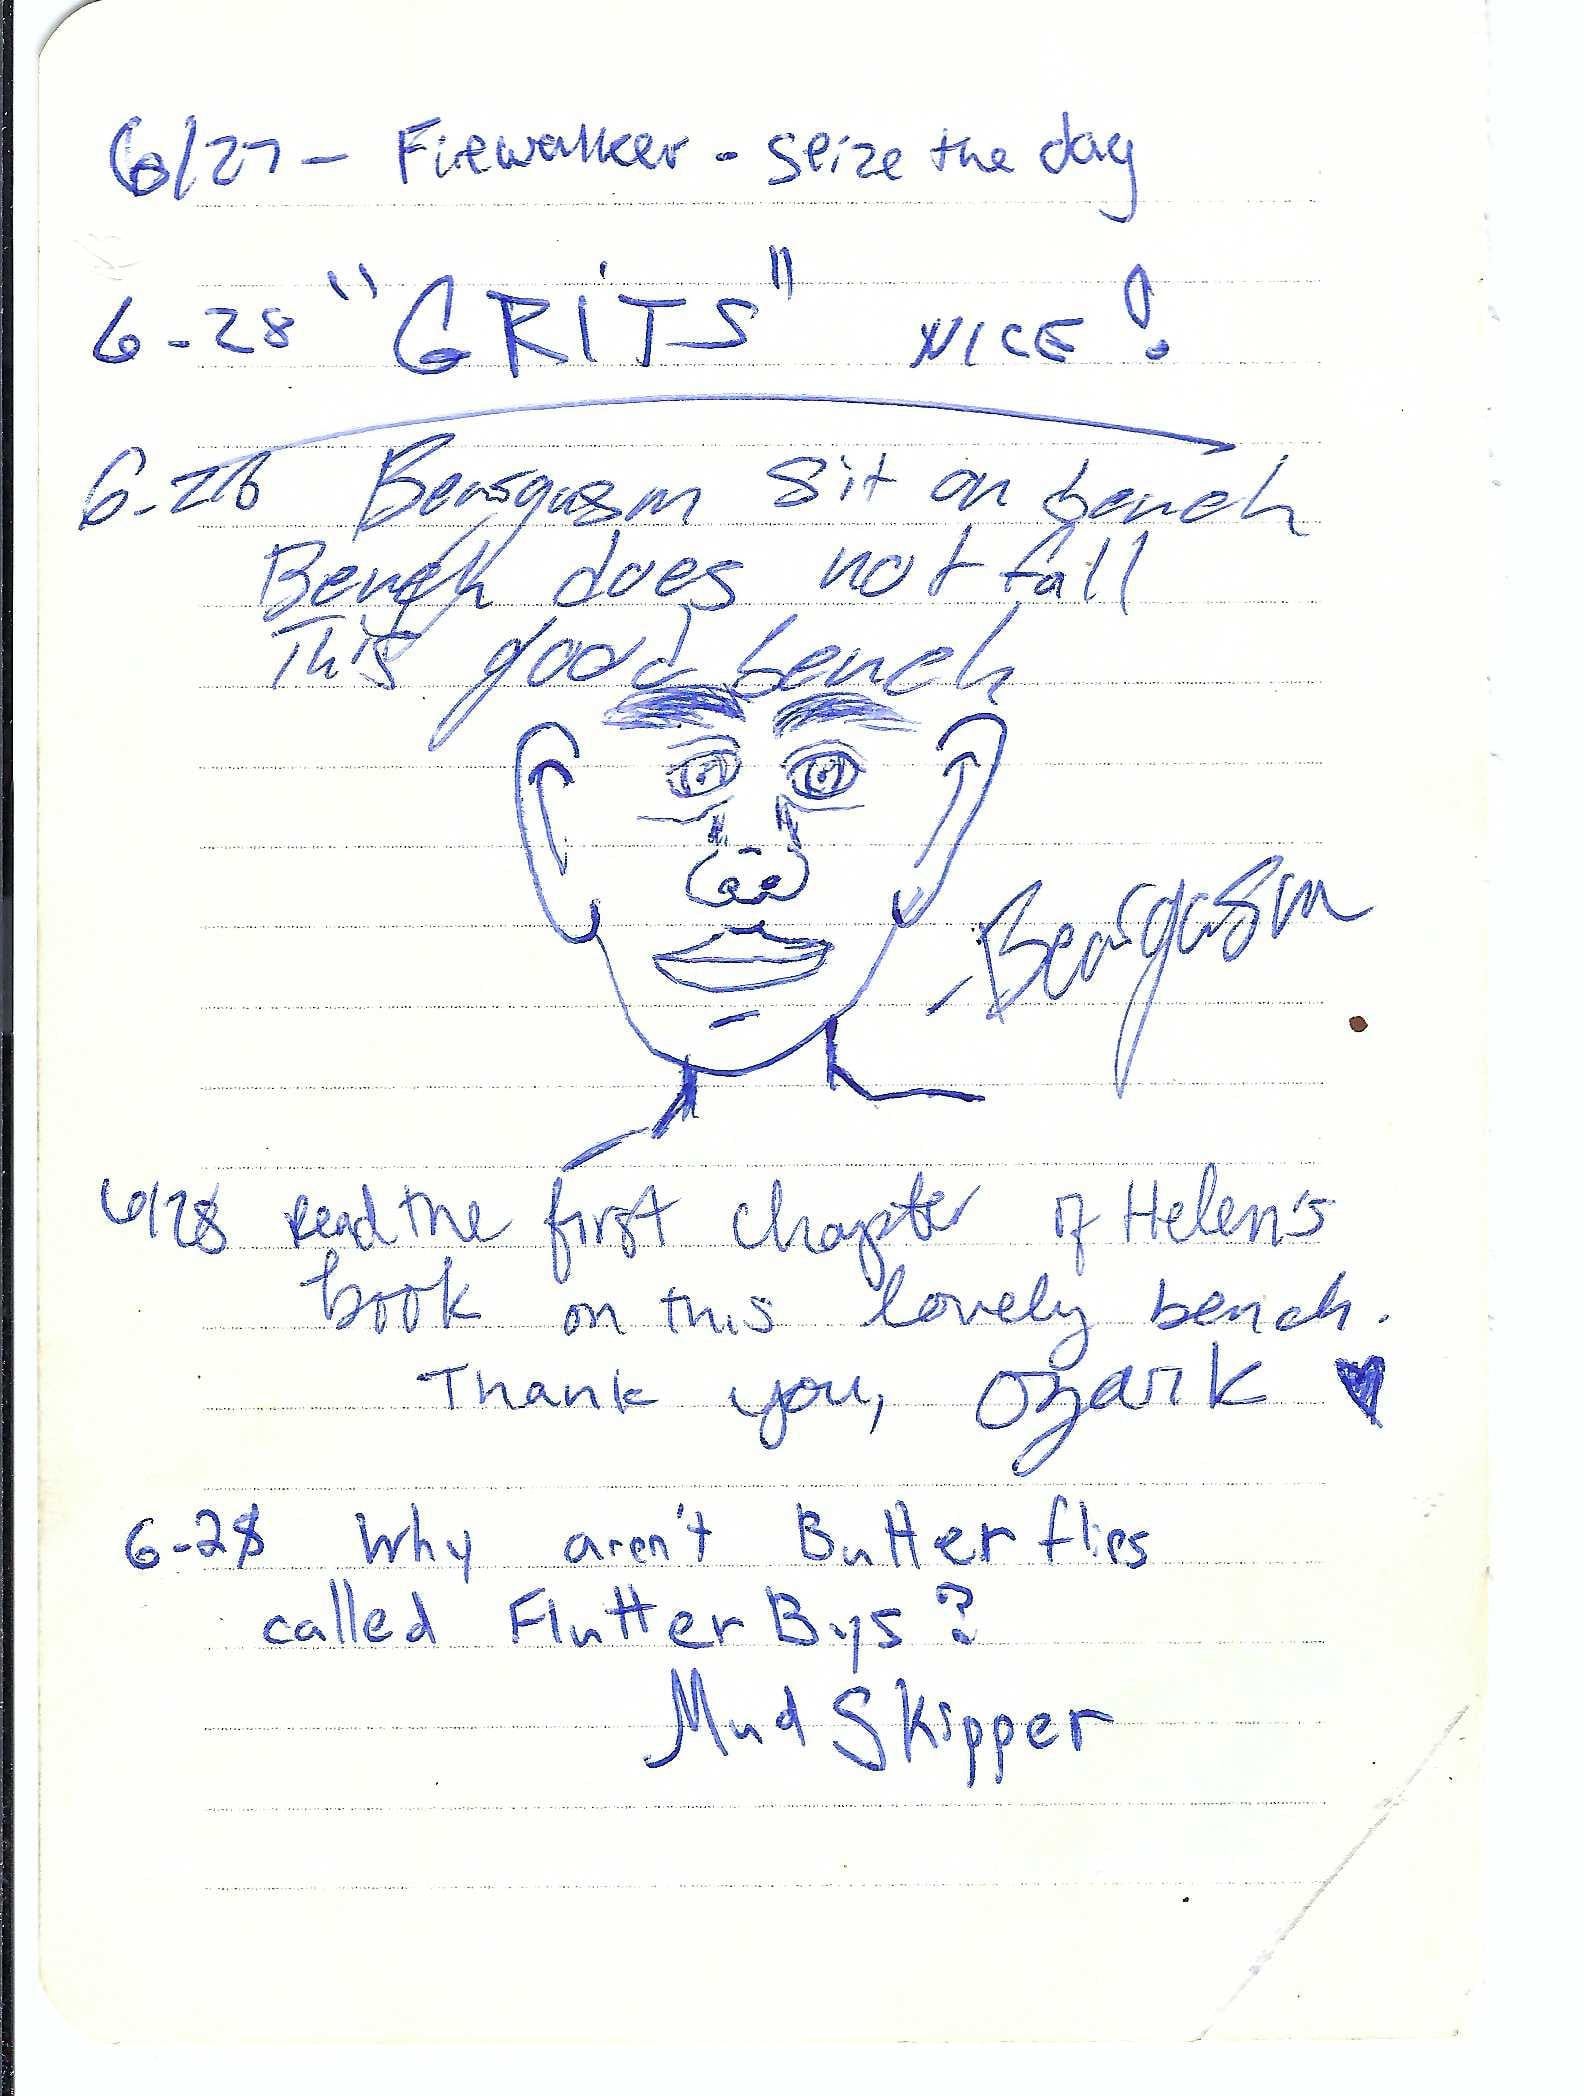 6/27 - Firewalker - seize the day
6-28 "GRITS" NICE!
6-28 Beargasm sit on bench
Bench does not fall
This good bench
- Beargasm
6/28 Read the first chapter of Helen's
book on this lovely bench.
Thank you, Ozark ♥
6-28 Why aren't Butterflies
called FlutterBys?
MudSkipper